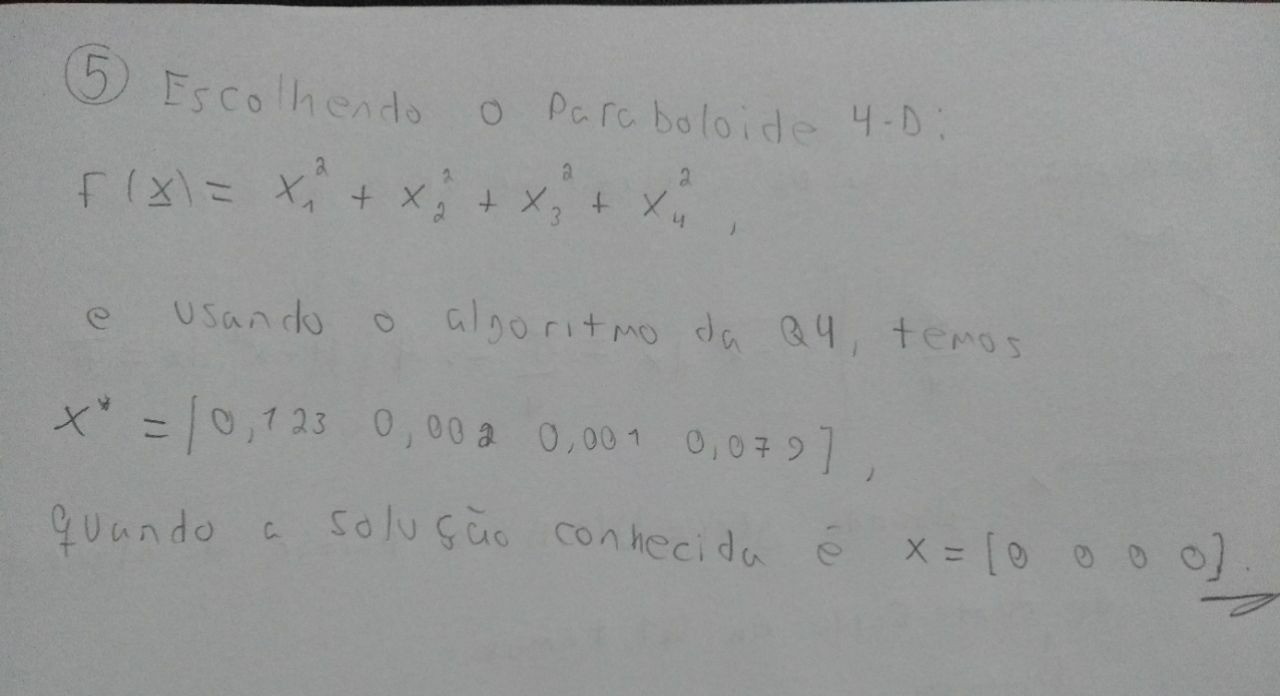 ⑤ Escolhendo o Paraboloide 4-D:
f(x̲) = x₁² + x₂² + x₃² + x₄² ,
e usando o algoritmo da Q4, temos
x* = [0,123 0,002 0,001 0,079] ,
quando a solução conhecida é x = [0 0 0 0].